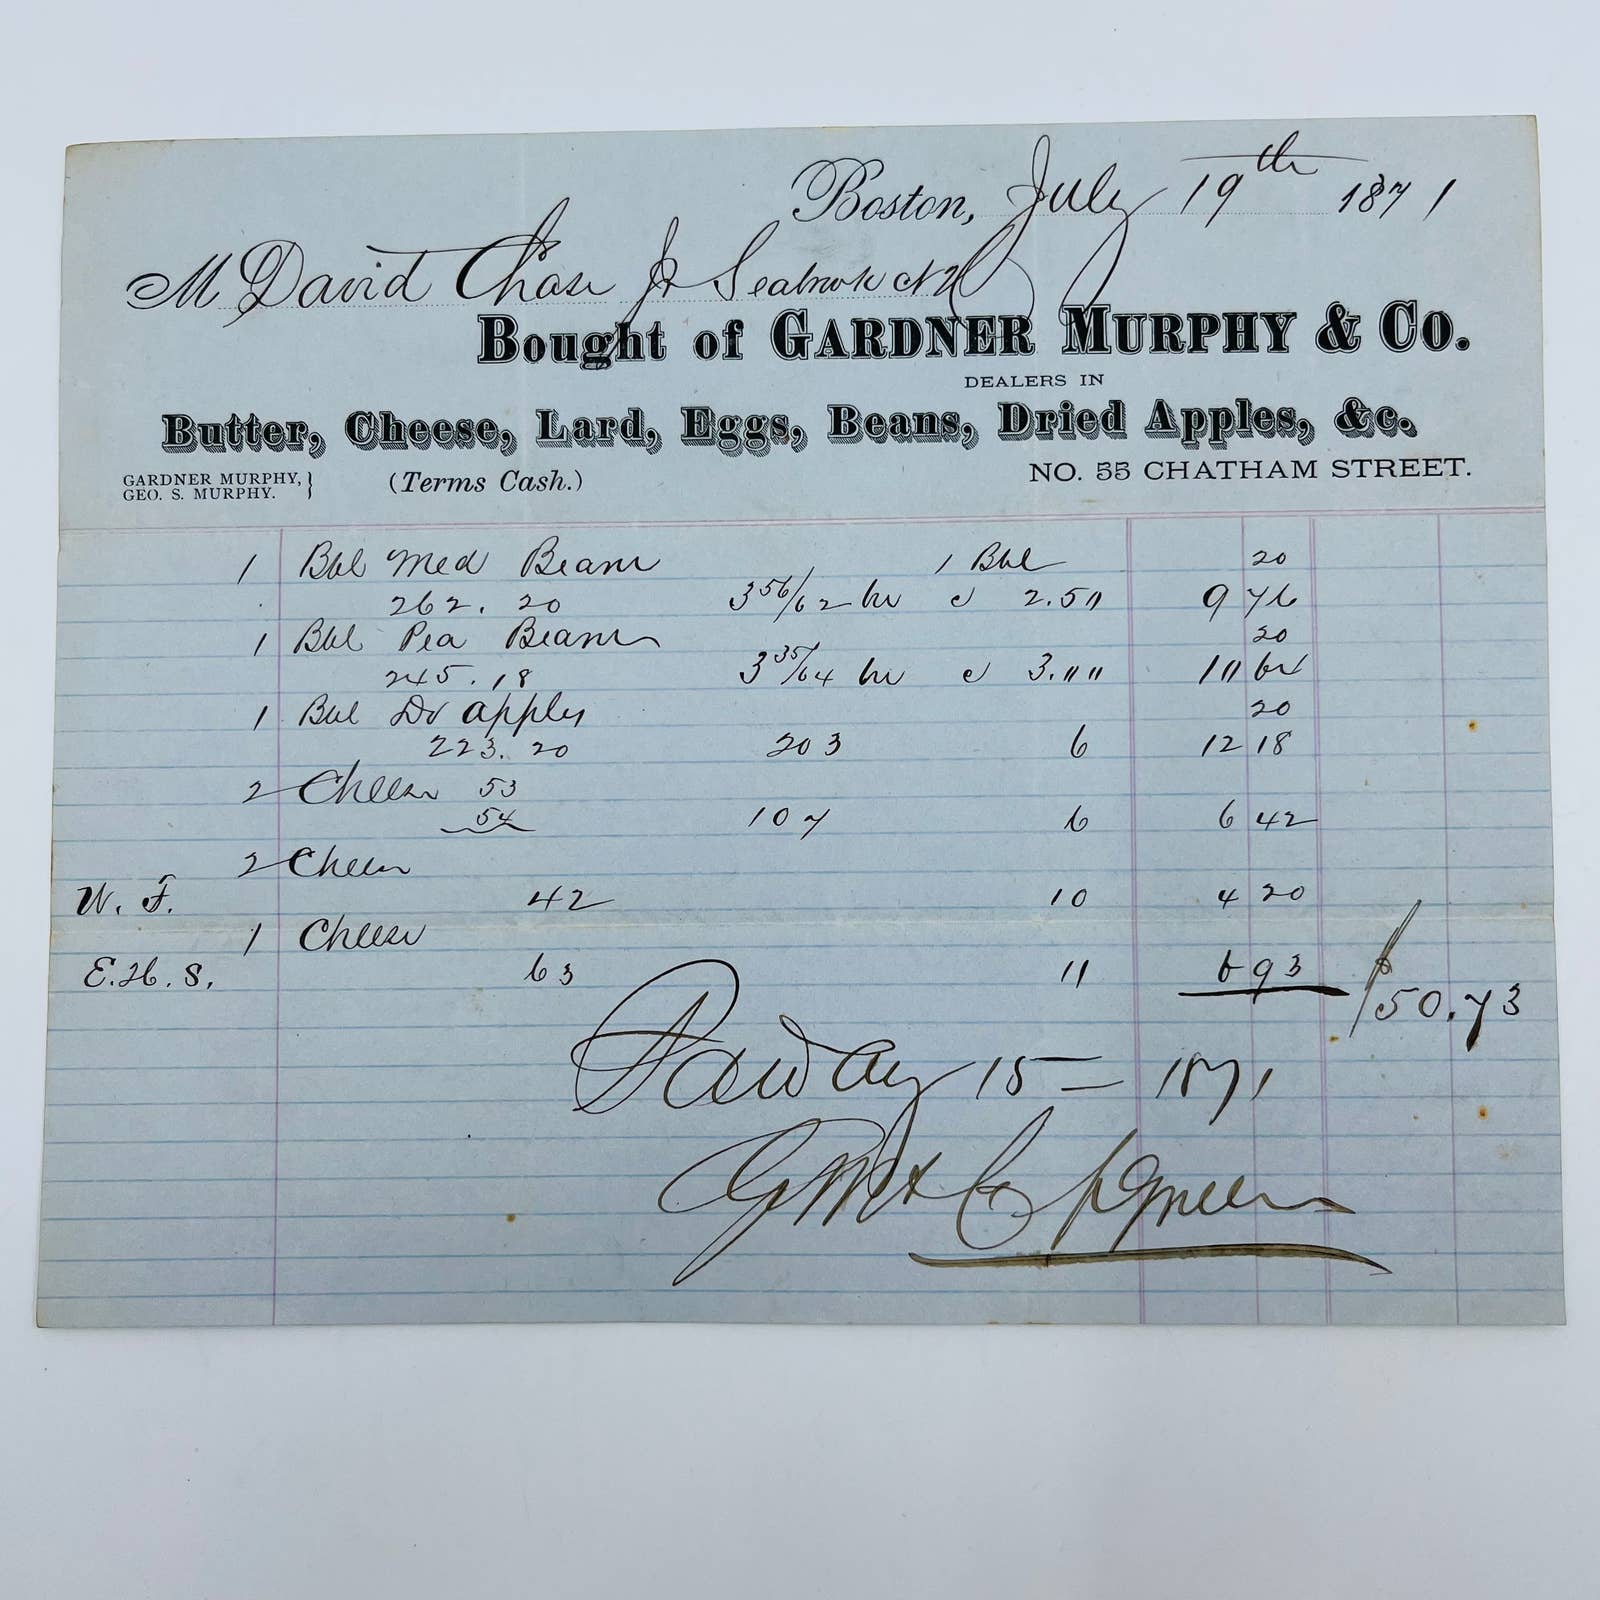 Boston, July 19th 1871
M David Chase Jr Seabrook N H
Bought of GARDNER MURPHY & Co.
DEALERS IN
Butter, Cheese, Lard, Eggs, Beans, Dried Apples, &c.
GARDNER MURPHY, }
GEO. S. MURPHY. }
(Terms Cash.)
NO. 55 CHATHAM STREET.
1 Bbl Med Beans 1 Bbl 20
262. 20 3 56/62 bu @ 2.50 9 76
1 Bbl Pea Beans 20
245. 18 3 35/64 bu @ 3.00 10 64
1 Bbl Dr apples 20
223. 20 203 6 12 18
2 Cheese 53
54 107 6 6 42
2 Cheese
W. F. 42 10 4 20
1 Cheese
E. H. S. 63 11 6 93
$50.73
Paid Aug 15 = 1871
G M & Co